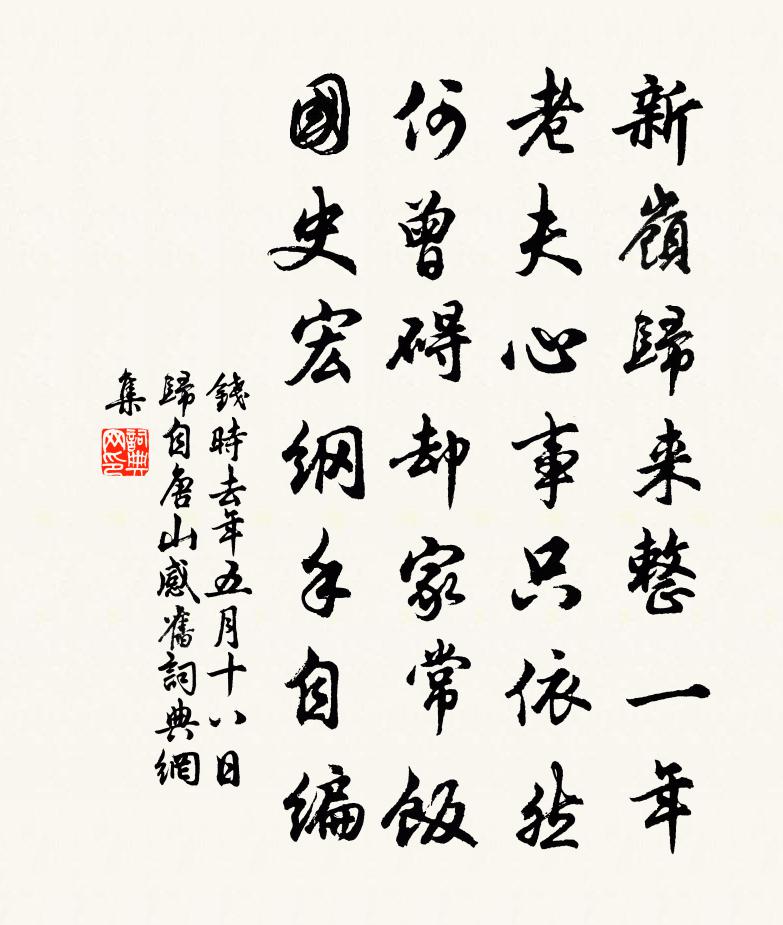 新嶺歸来整一年
老夫心事只依然
何曾碍却家常飯
國史宏纲手自编
錢時去年五月十八日
歸自唐山感舊詞典網
集
詞典
网印